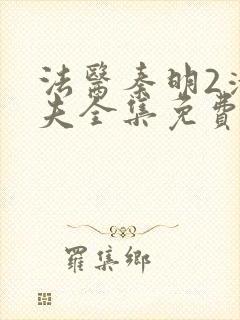 法醫秦明2清
夫全集免費
羅集鄉